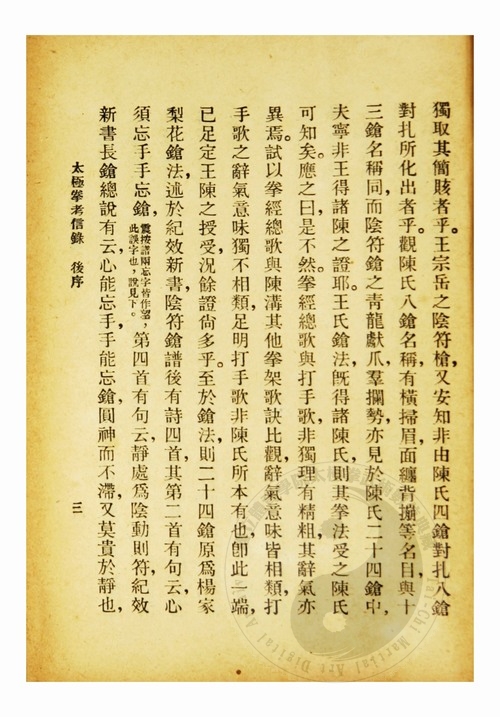 獨取其簡賅者乎。王宗岳之陰符槍，又安知非由陳氏四鎗對扎八鎗
對扎所化出者乎。觀陳氏八鎗名稱，有橫掃眉面纏背攔等名目，與十
三鎗名稱同，而陰符鎗之青龍獻爪，羣攔勢，亦見於陳氏二十四鎗中，
夫寧非王得諸陳之證耶。王氏鎗法，旣得諸陳氏，則其拳法受之陳氏
可知矣。應之曰，是不然。拳經總歌與打手歌，非獨理有精粗，其辭氣亦
異焉。試以拳經總歌與陳溝其他拳架歌訣比觀，辭氣意味皆相類，打
手歌之辭氣意味獨不相類，足明打手歌非陳氏所本有也。卽此一端，
已足定王陳之授受，況餘證尙多乎。至於鎗法，則二十四鎗原爲楊家
梨花鎗法，述於紀效新書，陰符鎗譜後有詩四首，其第二首有句云，心
須忘手手忘鎗，震按諸兩忘字皆作望，此誤字也，說見下。第四首有句云，靜處爲陰動則符，紀效
新書長鎗總說有云，心能忘手，手能忘鎗，圓神而不滯，又莫貴於靜也，
太極拳考信錄　後序　三